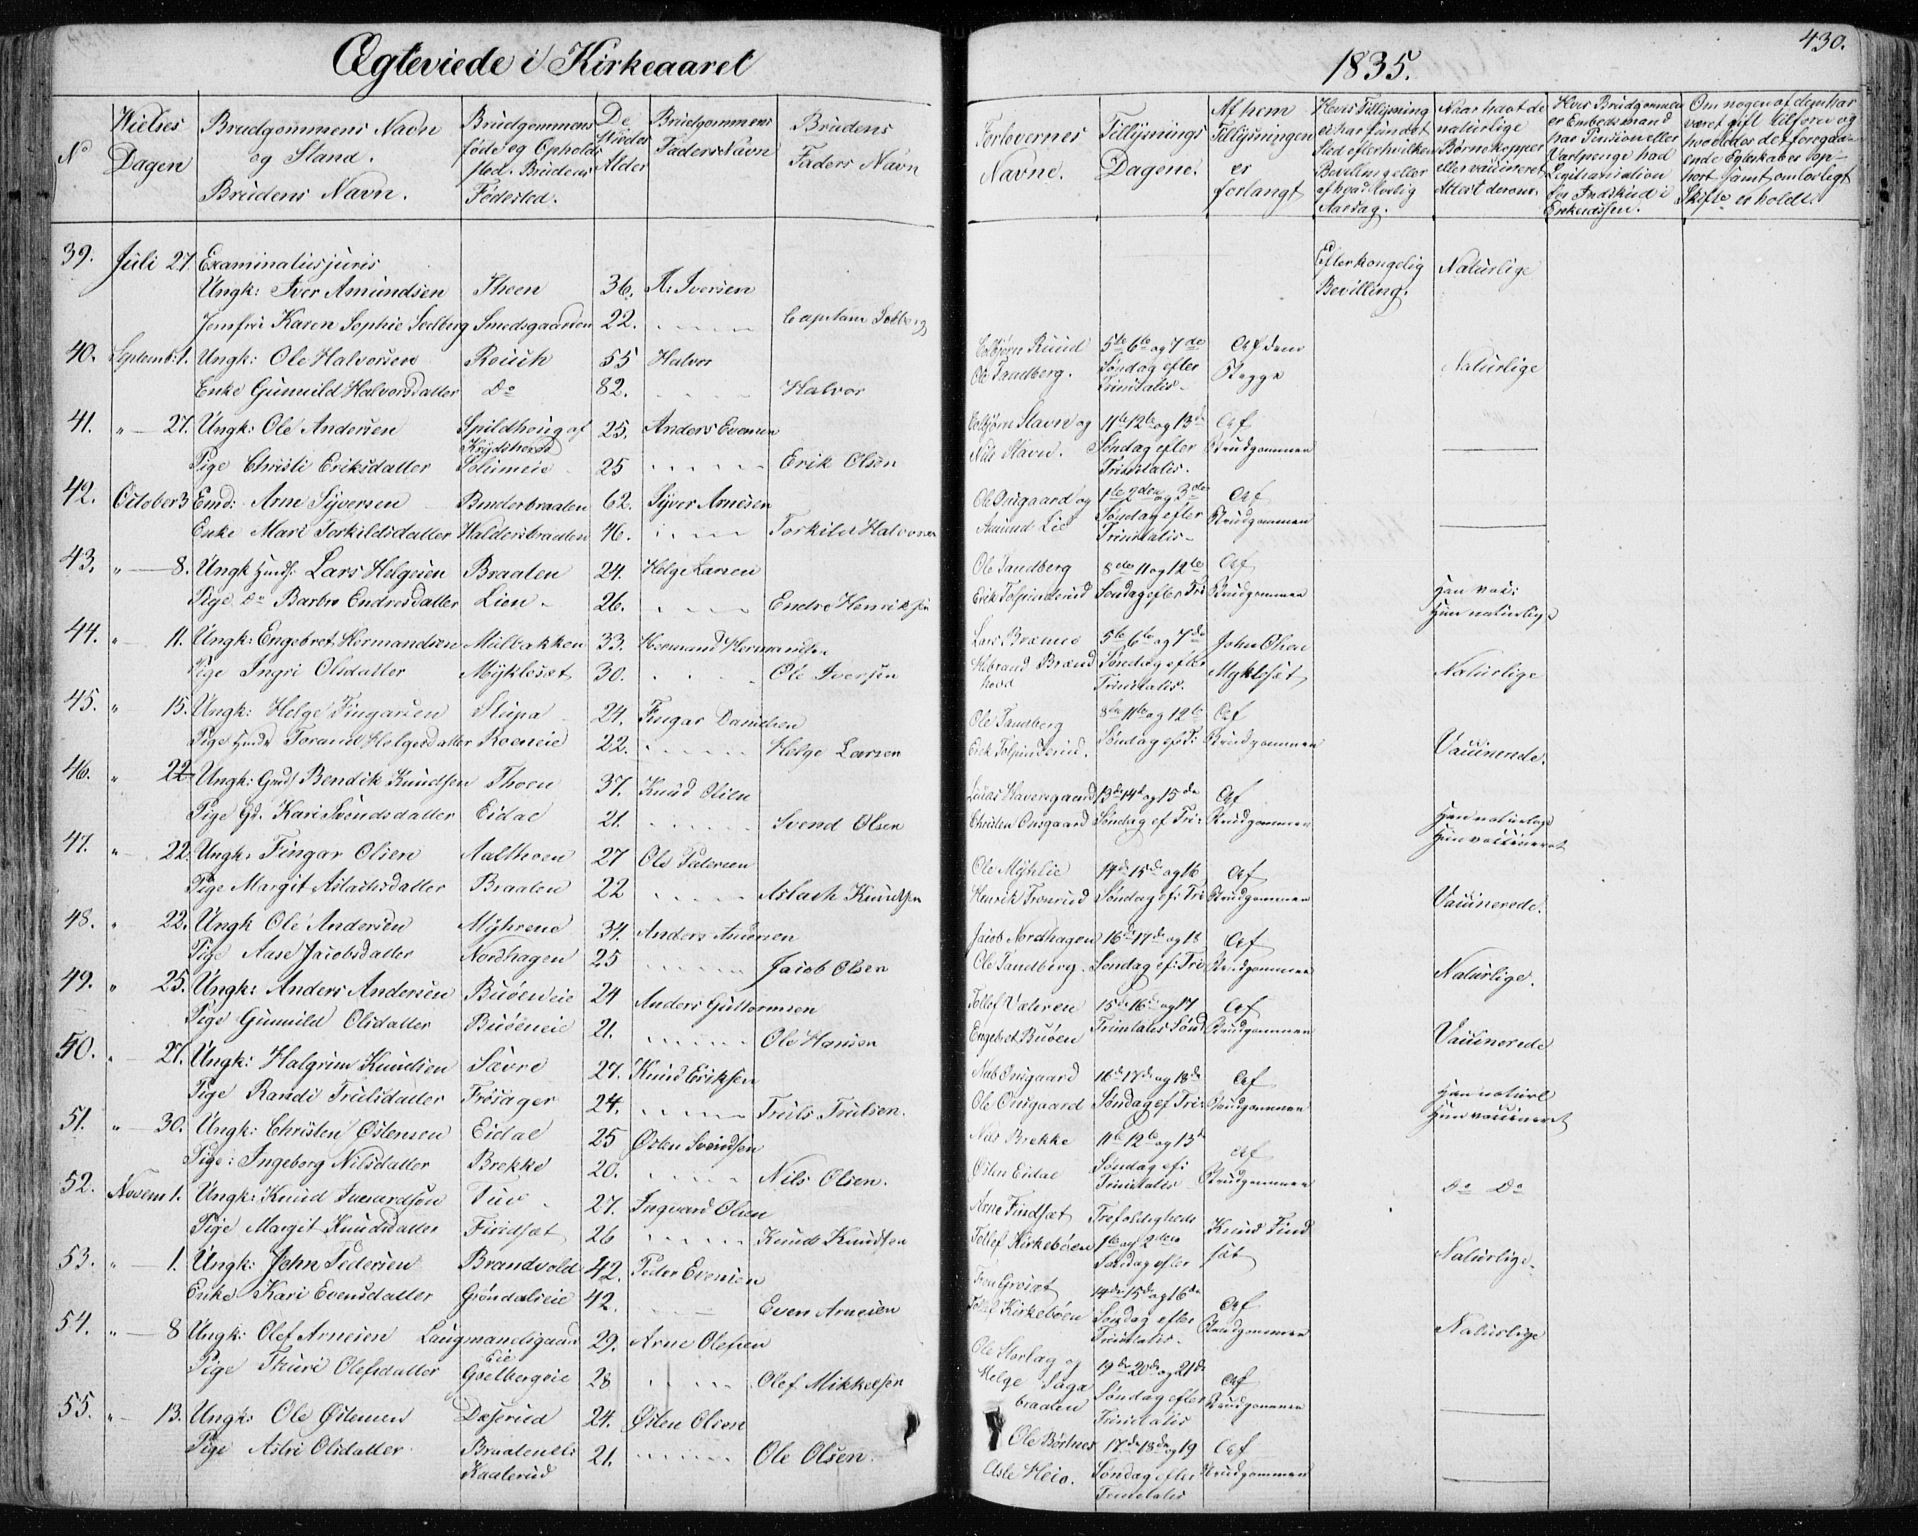 Ægteviede i Kirkeaaret
1835.
430.
No
Vielses Dagen
Brudgommens Navn og Stand. Brudens Navn.
Brudgommens føde og Opholds sted. Brudens Fødested.
De Alder
Brudgommens Faders Navn
Brudens Faders Navn
Forlovernes Navne.
Tillysnings Dagene.
Af hvem Tillysningen er forlangt
Hvis Tillysning ei har fundet Sted efter hvilken Bevilling eller af hvad lovlig Aarsag.
Naar havt de naturlige Børnekopper eller vaccineret Attest derom.
Hvis Brudgommen er Embedsmand har Pension eller Vartpenge had Legitimation for Indskud i Enkecassen.
Om nogen af dem har været gift tilforn og hvorledes det foregaaende Egteskab er ophørt samt om lovligt Skifte er holdt.
39. Juli 27 Examinatus juris
Ungk: Iver Amundsen Thoen 36. A: Iversen Efter kongelig Bevilling. Naturlige
Jomfru Karen Sophie Sedberg Smedsgaarden 22. Capitain
40. Septemb: 1. Ungk: Ole Halvorsen Rouch 55 Halvor Colbjørn Ruud 5te 6te og 7de Af dem
Enke Gunnild Halvorsdatter Do 82. Halvor Ole Sandberg. Søndag efter Trinitatis. Begge Naturlige
41. " 27. Ungk: Ole Andersen Spildhoug af 25. Anders Evensen Colbjørn Stavn og 11te 12te og 13de Af
Pige Christi Eriksdatter 25 Erik Olsen Nils Stavn. Søndag efter Trinitatis. Brudgommen
42. October 3 Emd: Arne Syversen Binderbraaten 62. Syver Arnesen Ole Onsgaard og 1te 2den og 3de Af
Enke Mari Torkildsdatter Haldersbraaten 46. Torkild Halvorsen Amund Lie Søndag efter Trinitatis Brudgommen
43. " 8. Ungk Huusf: Lars Helgesen Braaten 24. Helge Larsen Ole Sandberg 8de 11 og 12te Af
Pige Do Barbro Endresdatter Lien 26. Endre Henriksen Erik Tolpinderud Søndag efter Tri Brudgommen Han vac: Hun naturlige
44. " 11. Ungk: Engebret Hermandsen Milbakken 33. Hermand Hermandsen Lars 5te 6te og 7de John Olsen
Pige Ingri Olsdatter Myklesæt 30. Ole Iversen Hilbrand Søndag efter Trinitatis. Myklesæt Naturlige
45. " 15. Ungk: Helge Fingarsen Slupa 24. Fingar Danielsen Ole Sandberg 8de 11te og 12te Af
Pige Huusf Torand Helgesdatter Roeneie 22. Helge Larsen Erik Tolpinderud. Søndag ef: T: Brudgommen Vaccinerede.
46. " 22. Ungk: Gmd: Bendik Knudsen Thoen 37. Knud Olsen Lucas Haversgaard 13de 14de og 15de Af
Pige Gd. Kari Svendsdatter Eidal 21. Svend Olsen Christen Onsgaard Søndag ef Tri: Brudgommen Han naturlige Hun vaccineret
47. " 22. Ungk: Fingar Olsen Aalthoen 27 Ole Pedersen Ole Myhlie 14de 15de og 16 Af
Pige Margit Aslachsdatter Braaten 22 Aslach Knudsen Henrik Trosrud Søndag ef: Tri Brudgommen Vaccinerede.
48. " 22. Ungk Ole Andersen Myhrene 34. Anders Jacob Nordhagen 16de 17de og 18 Af
Pige Aase Jacobsdatter Nordhagen 25 Jacob Olsen Ole Sandberg. Søndag ef: Tri Brudgommen Naturlige.
49. " 25. Ungk: Anders Andersen Buøeneie 24 Anders Guttormsen Tollef Væteren 15de 16de og 17 Af
Pige Gunnild Olsdatter Buøeneie 21. Ole Hansen Engebret Buøen Trinitatis Sønd Brudgommen Vaccinerede
50. " 27. Ungk: Halgrim Knudsen Sævre 27. Knud Eriksen Onsgaard 16de 17de og 18de Af
Pige Randi Trulsdatter Frøsager 24. Truls Trulsen. Ole Onsgaard Søndag ef Tri: Brudgommen Han naturl Hun vaccineret
51. " 30. Ungk: Christen Østensen Eidal 25 Østen Svendsen Nils Brekke 11te 12te og 13de Af
Pige: Ingeborg Nilsdatter Brekke 20. Nils Olsen. Østen Eidal Søndag ef: Trinitatis Brudgommen Do Do
52. Novem 1. Ungk: Knud Tuv 27. Ingvard Olsen Arne Findsæt Trefoldigheds Knud Find
Pige Margit Knudsdatter Findsæt 26 Knud Knudsen Tollef Kirkebøen 1te og 2den Søndag efter sæt
53. " 1. Ungk: John Pedersen Brandvold 42. Peder Evensen 14de 15de og 16de Af Naturlige.
Enke Kari Evensdatter Grøndalseie 42. Even Arnesen Kirkebøen Søndag efter Trinitatis. Brudgommen
54. " 8 Ungk: Olef Arnesen Laugmandsgaard Eie 29. Arne Olefsen Ole Storlag og 19de 20de og 21de Af Naturlige
Pige Thuri Olefsdatter Goelbergeie 28 Olef Mikkelsen Helge Sagabraaten Søndag efter Trinitatis Brudgommen
55. " 13. Ungk: Ole Østensen Dæserud 24. Østen Olsen Ole Børtnes 17de 18de og 19 Af
Pige Astri Olsdatter Braaten Kaalerud 21. Ole Olsen. Asle Heio. Søndag efter Trinitatis Brudgommen